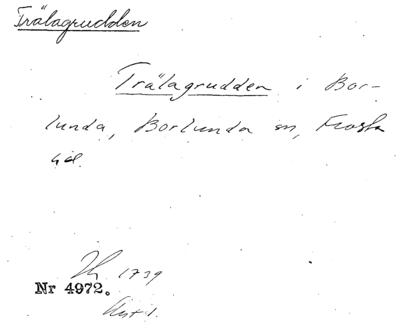 Trälagrudden
Trälagrudden i Bor-
lunda, Borlunda sn, Frosta
hd.
1739
Nr 4972.